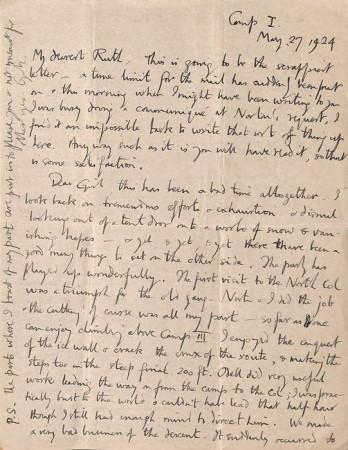 Camp I.
May 27 1924
My dearest Ruth, This is going to be the scrappiest
letter – a time limit for the mail has suddenly been put
on & this morning when I might have been writing to you
I was busy doing a communiqué at Norton's request, I
found it an impossible task to write that sort of thing up
here. Any way such as it is you will have read it, so that
is some satisfaction.
Dear Girl this has been a bad time altogether – I
look back on tremendous efforts & exhaustion & dismal
looking out of a tent door onto a world of snow & van-
ishing hopes – & yet, & yet, & yet there have been a
good many things to set on the other side. The party has
played up wonderfully. The first visit to the North Col
was a triumph for the old gang. Norton & I did the job
& the cutting of course was all my part – so far as one
can enjoy climbing above Camp III I enjoyed the conquest
of the ice wall & crack, the crux of the route, & making the
steps too in the steep final 200 ft. Odell did very useful
work leading the way on from the camp to the Col; I was prac-
tically bust to the world & couldn't have lead that half hour
though I still had enough mind to direct him. We made
a very bad business of the descent. It suddenly occurred to
P.S. The parts where I boast of my part are put in to please you & not meant for
other eyes